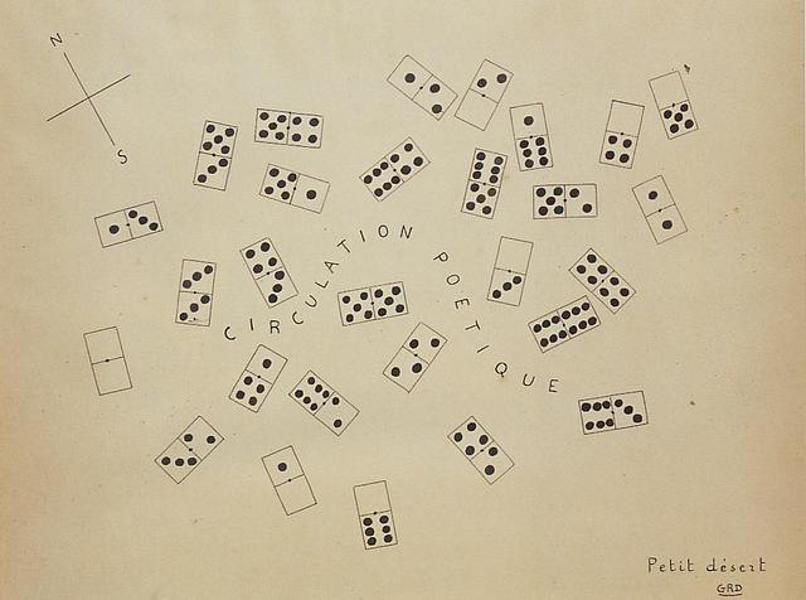 N
S
CIRCULATION POETIQUE
Petit désert
GRD